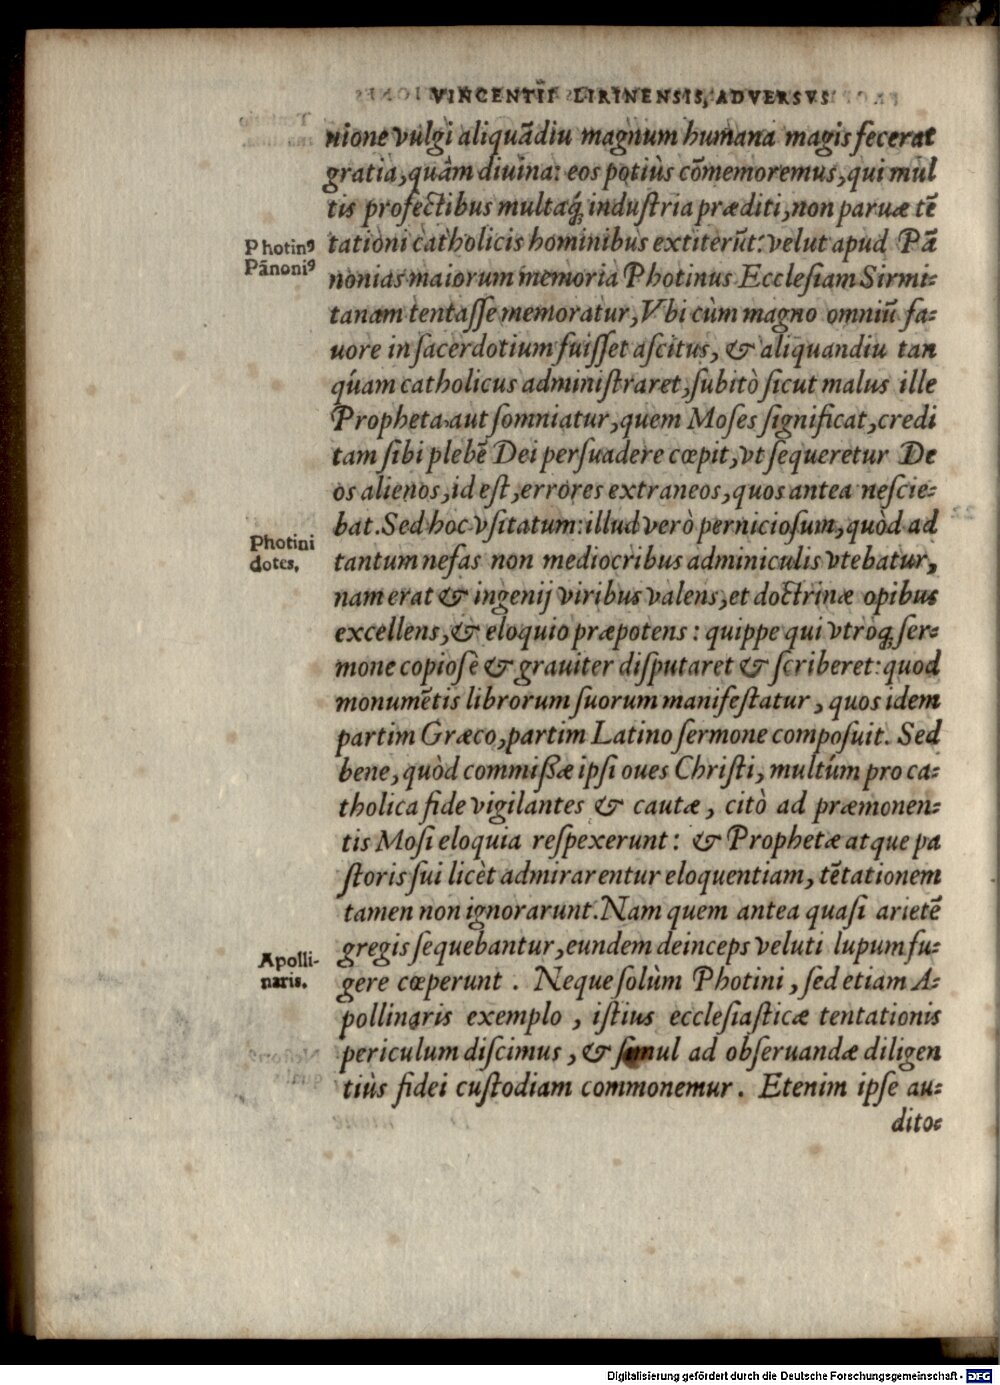 VINCENTII LIRINENSIS, ADVERSVS
nione vulgi aliquãdiu magnum humana magis fecerat
gratia, quàm diuina: eos potiùs cõmemoremus, qui mul
tis profectibus multaq́; industria præditi, non paruæ tẽ
Photinꝰ
Pãnoniꝰ
tationi catholicis hominibus extiterũt: velut apud Pã
nonias maiorum memoria Photinus Ecclesiam Sirmi=
tanam tentasse memoratur, Vbi cùm magno omniũ fa=
uore in sacerdotium fuisset ascitus, & aliquandiu tan
quam catholicus administraret, subitò sicut malus ille
Propheta aut somniatur, quem Moses significat, credi
tam sibi plebẽ Dei persuadere cœpit, vt sequeretur De
os alienos, id est, errores extraneos, quos antea nescie=
bat. Sed hoc vsitatum: illud verò perniciosum, quòd ad
Photini
dotes.
tantum nefas non mediocribus adminiculis vtebatur,
nam erat & ingenij viribus valens, et doctrinæ opibus
excellens, & eloquio præpotens: quippe qui vtroq; ser=
mone copiosè & grauiter disputaret & scriberet: quod
monumẽtis librorum suorum manifestatur, quos idem
partim Græco, partim Latino sermone composuit. Sed
bene, quòd commißæ ipsi oues Christi, multúm pro ca=
tholica fide vigilantes & cautæ, citò ad præmonen=
tis Mosi eloquia respexerunt: & Prophetæ atque pa
storis sui licèt admirarentur eloquentiam, tẽtationem
tamen non ignorarunt. Nam quem antea quasi arietẽ
gregis sequebantur, eundem deinceps veluti lupum fu=
Apolli-
naris.
gere cœperunt. Neque solùm Photini, sed etiam A=
pollinaris exemplo, istius ecclesiasticæ tentationis
periculum discimus, & simul ad obseruandæ diligen
tiùs fidei custodiam commonemur. Etenim ipse au=
dito=
Digitalisierung gefördert durch die Deutsche Forschungsgemeinschaft - DFG